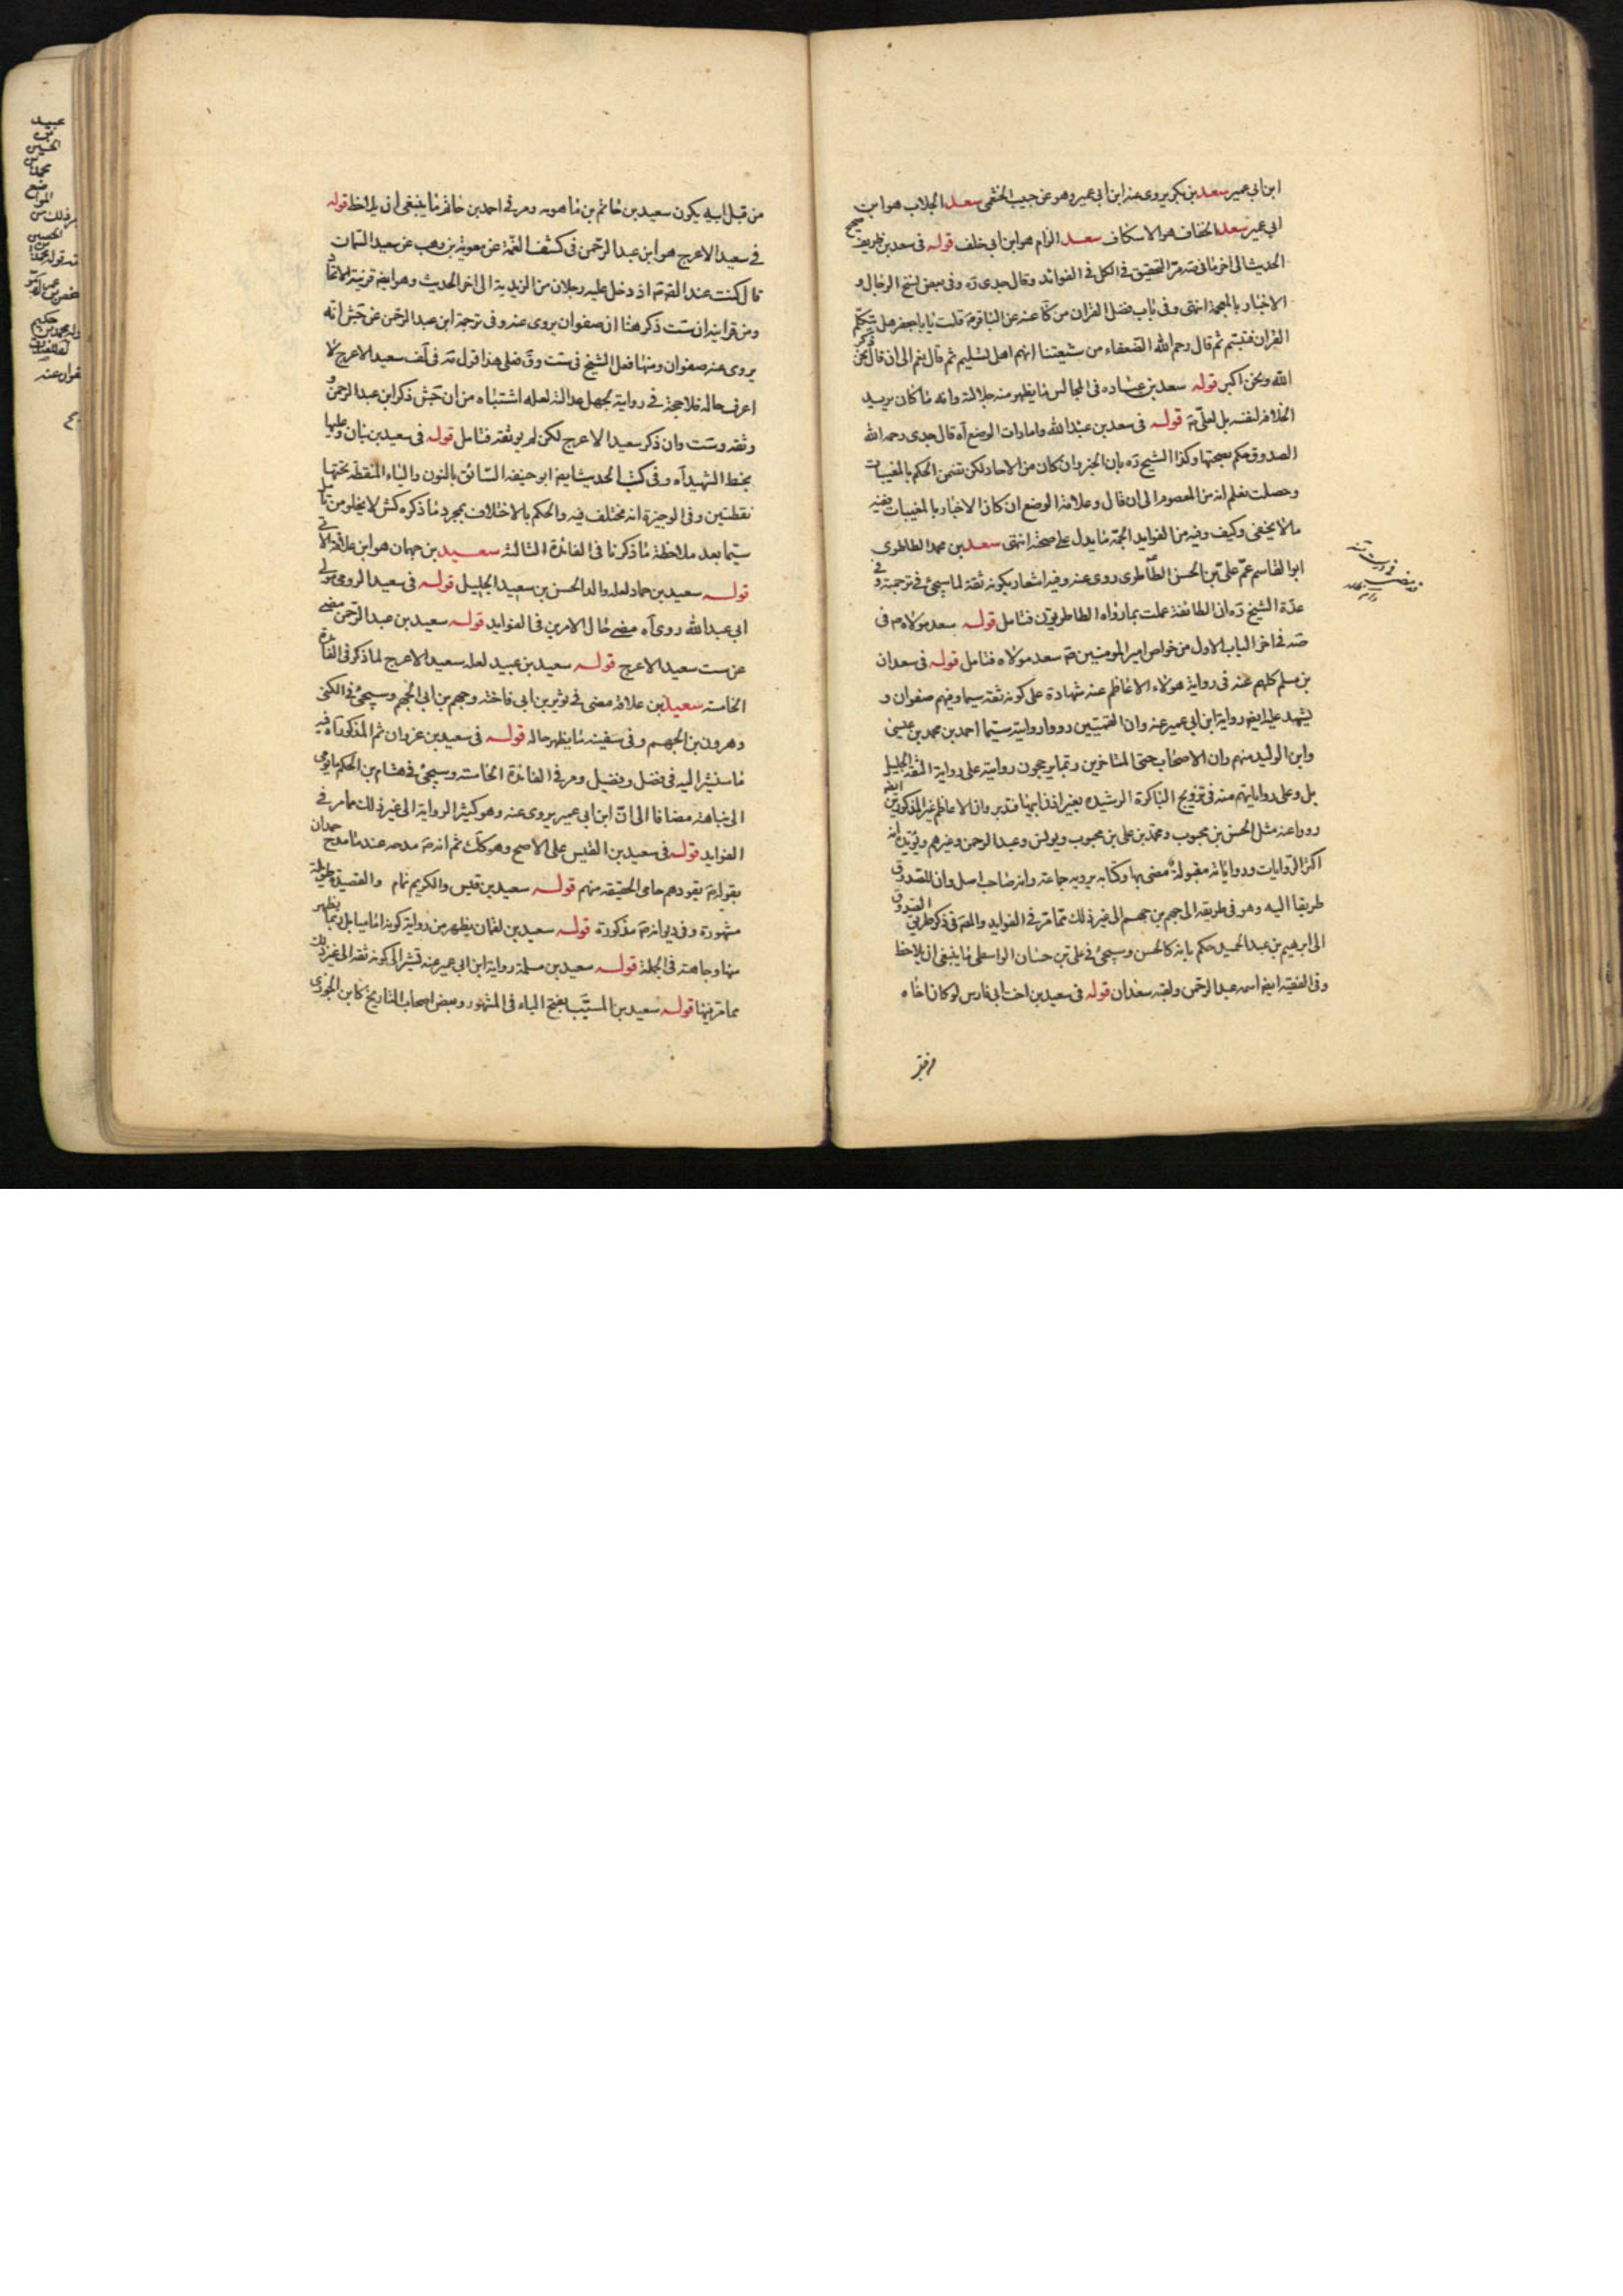 ابن ابي عمير سعد بن بكر يروى عنه ابن ابي عمير وهو عن حبيب الخثعمى سعد الجلاب هو ابن
ابي عمير سعد الخفاف هو الاسكاف سعد الزام هو ابن ابي خلف قوله فى سعد بن طريف صحيح
الحديث الى اخر ما فى قه مر التحقيق فى الكل فى الفوائد وقال جدى ره وفى بعض نسخ الرجال و
الاخبار بالمعجمة انتهى وفى باب فضل القران من كا عنه عن الباقر ع قلت يا با جعفر هل يتكلم
القران فتبسم ثم قال رحم الله الضعفاء من شيعتنا انهم اهل تسليم ثم قال نعم الى ان قال نحن ذكر
الله ونحن اكبر قوله سعد بن عباده فى المجالس ما يظهر منه جلالته وانه ما كان يريد
الخلافة لنفسه بل لعلى ع قوله فى سعد بن عبد الله وامارات الوضع آه قال جدى رحمه الله
الصدوق حكم بصحتها وكذا الشيخ ره بان الخبر وان كان من الاحاد لكن تضمن الحكم بالمغيبات
وحصلت فعلم انه من المعصوم الى ان قال وعلامة الوضع ان كان الاخبار بالمغيبات ففيه
ما لا يخفى وكيف وفيه من الفوايد الجمة ما يدل على صحته انتهى سعد بن محمد الطاطرى
ابو القاسم عم على بن الحسن الطاطرى روى عنه وفيه اشعار بكونه ثقة لما سيجئ فى ترجمته وفى
عدة الشيخ ره ان الطائفة عملت بما رواه الطاطريون فتامل قوله سعد مولاه م فى
صه فى اخر الباب الاول من خواص امير المومنين ع سعد مولاه فتامل قوله فى سعدان
بن مسلم كلهم عنه فى رواية هولاء الاعاظم عنه شهادة على كونه ثقة سيما وفيهم صفوان و
يشهد عليه ايضا رواية ابن ابي عمير عنه وان القميين رووا روايته سيما احمد بن محمد بن عيسى
وابن الوليد منهم وان الاصحاب حتى المتاخرين ربما يرجحون روايته على رواية الثقة الجليل
بل وعلى رواياتهم منه فى تزويج الباكرة الرشيده بغير اذن ابيها فتدبر وان الاعاظم غير المذكورين ايضا
رووا عنه مثل الحسن بن محبوب ومحمد بن على بن محبوب ويونس وعبد الرحمن وغيرهم ويؤيده انه
اكثر الروايات ورواياته مقبولة مفتى بها وكتابه يرويه جماعة وانه صاحب اصل وان للصدوق
طريقا اليه وهو فى طريقه الى جهم بن جهم الى غير ذلك مما مر فى الفوايد والمص فى ذكر طريق الصدوق
الى ابرهيم بن عبد الحميد حكم بانه كالحسن وسيجئ فى على بن حسان الواسطى ما ينبغى ان يلاحظ
وفى الفقيه ايضا اسمه عبد الرحمن ولقبه سعدان قوله فى سعيد بن اخت ابى فارس لو كان اخاه
من قبل ابيه يكون سعيد بن خاتم بن ماهويه ومر فى احمد بن خاتم ما ينبغى ان يلاحظ قوله
فى سعيد الاعرج هو ابن عبد الرحمن فى كشف الغمة عن معوية بن وهب عن سعيد السمان
قال كنت عند الص ع اذ دخل عليه رجلان من الزيدية الى اخر الحديث وهو ايضا قرينة الاتحاد
ومن قراينه ان ست ذكر هنا ان صفوان يروى عنه وفى ترجمة ابن عبد الرحمن عن جش انه
يروى عنه صفوان ومنها فعل الشيخ فى ست وق فعلى هذا قول قه فى لف سعيد الاعرج لا
اعرف حاله فلا حجة فى روايته لجهل عدالته لعله اشتباه من ان جش ذكر ابن عبد الرحمن و
وثقه وست وان ذكر سعيد الاعرج لكن لم يوثقه فتامل قوله فى سعيد بن بنان وعليها
بخط الشهيد آه وفى كتب الحديث ايضا ابو حنيفه السائق بالنون والياء المنقطة تحتها
نقطتين وفى الوجيزة انه مختلف فيه والحكم بالاختلاف بمجرد ما ذكره كش لا يخلو من تامل
سيما بعد ملاحظة ما ذكرنا فى الفائدة الثالثة سعيد بن جهان هو ابن علاقة الاتى
قوله سعيد بن حماد لعله والد الحسن بن سعيد الجليل قوله فى سعيد الرومى مولى
ابي عبد الله روى آه مضى حال الامرين فى الفوايد قوله سعيد بن عبد الرحمن مضى
عن ست سعيد الاعرج قوله سعيد بن عبيد لعله سعيد الاعرج لما ذكر فى الفائدة
الخامسة سعيد بن علاقة مضى فى ثوير بن ابي فاخته وجهم بن ابي الجهم وسيجئ فى الكنى
وهرون بن الجهم وفى سفينه ما يظهر حاله قوله فى سعيد بن غزوان ثم المذكور آه فيه
ما سنشير اليه فى فضل وفضيل ومر فى الفائدة الخامسة وسيجئ فى هشام بن الحكم ما يومى
الى نباهته مضافا الى ان ابن ابي عمير يروى عنه وهو كثير الرواية الى غير ذلك مما مر فى
الفوايد قوله فى سعيد بن القيس على الاصح وهو كك ثم انه ع مدحه عند ما مدح همدان
بقوله ع يقودهم حامى الحقيقه منهم قوله سعيد بن قيس والكريم تمام والقصيدة طويلة
مشهورة وفى ديوانه ع مذكورة قوله سعيد بن لقمان يظهر من رواية كونه اماميا بل ربما يظهر
منها وجاهته فى الجملة قوله سعيد بن مسلمة رواية ابن ابي عمير عنه تشير الى كونه ثقة الى غير ذلك
مما مر فيها قوله سعيد بن المسيب بفتح الياء فى المشهور وبعض اصحاب التاريخ كابن الجوزى
عبيد